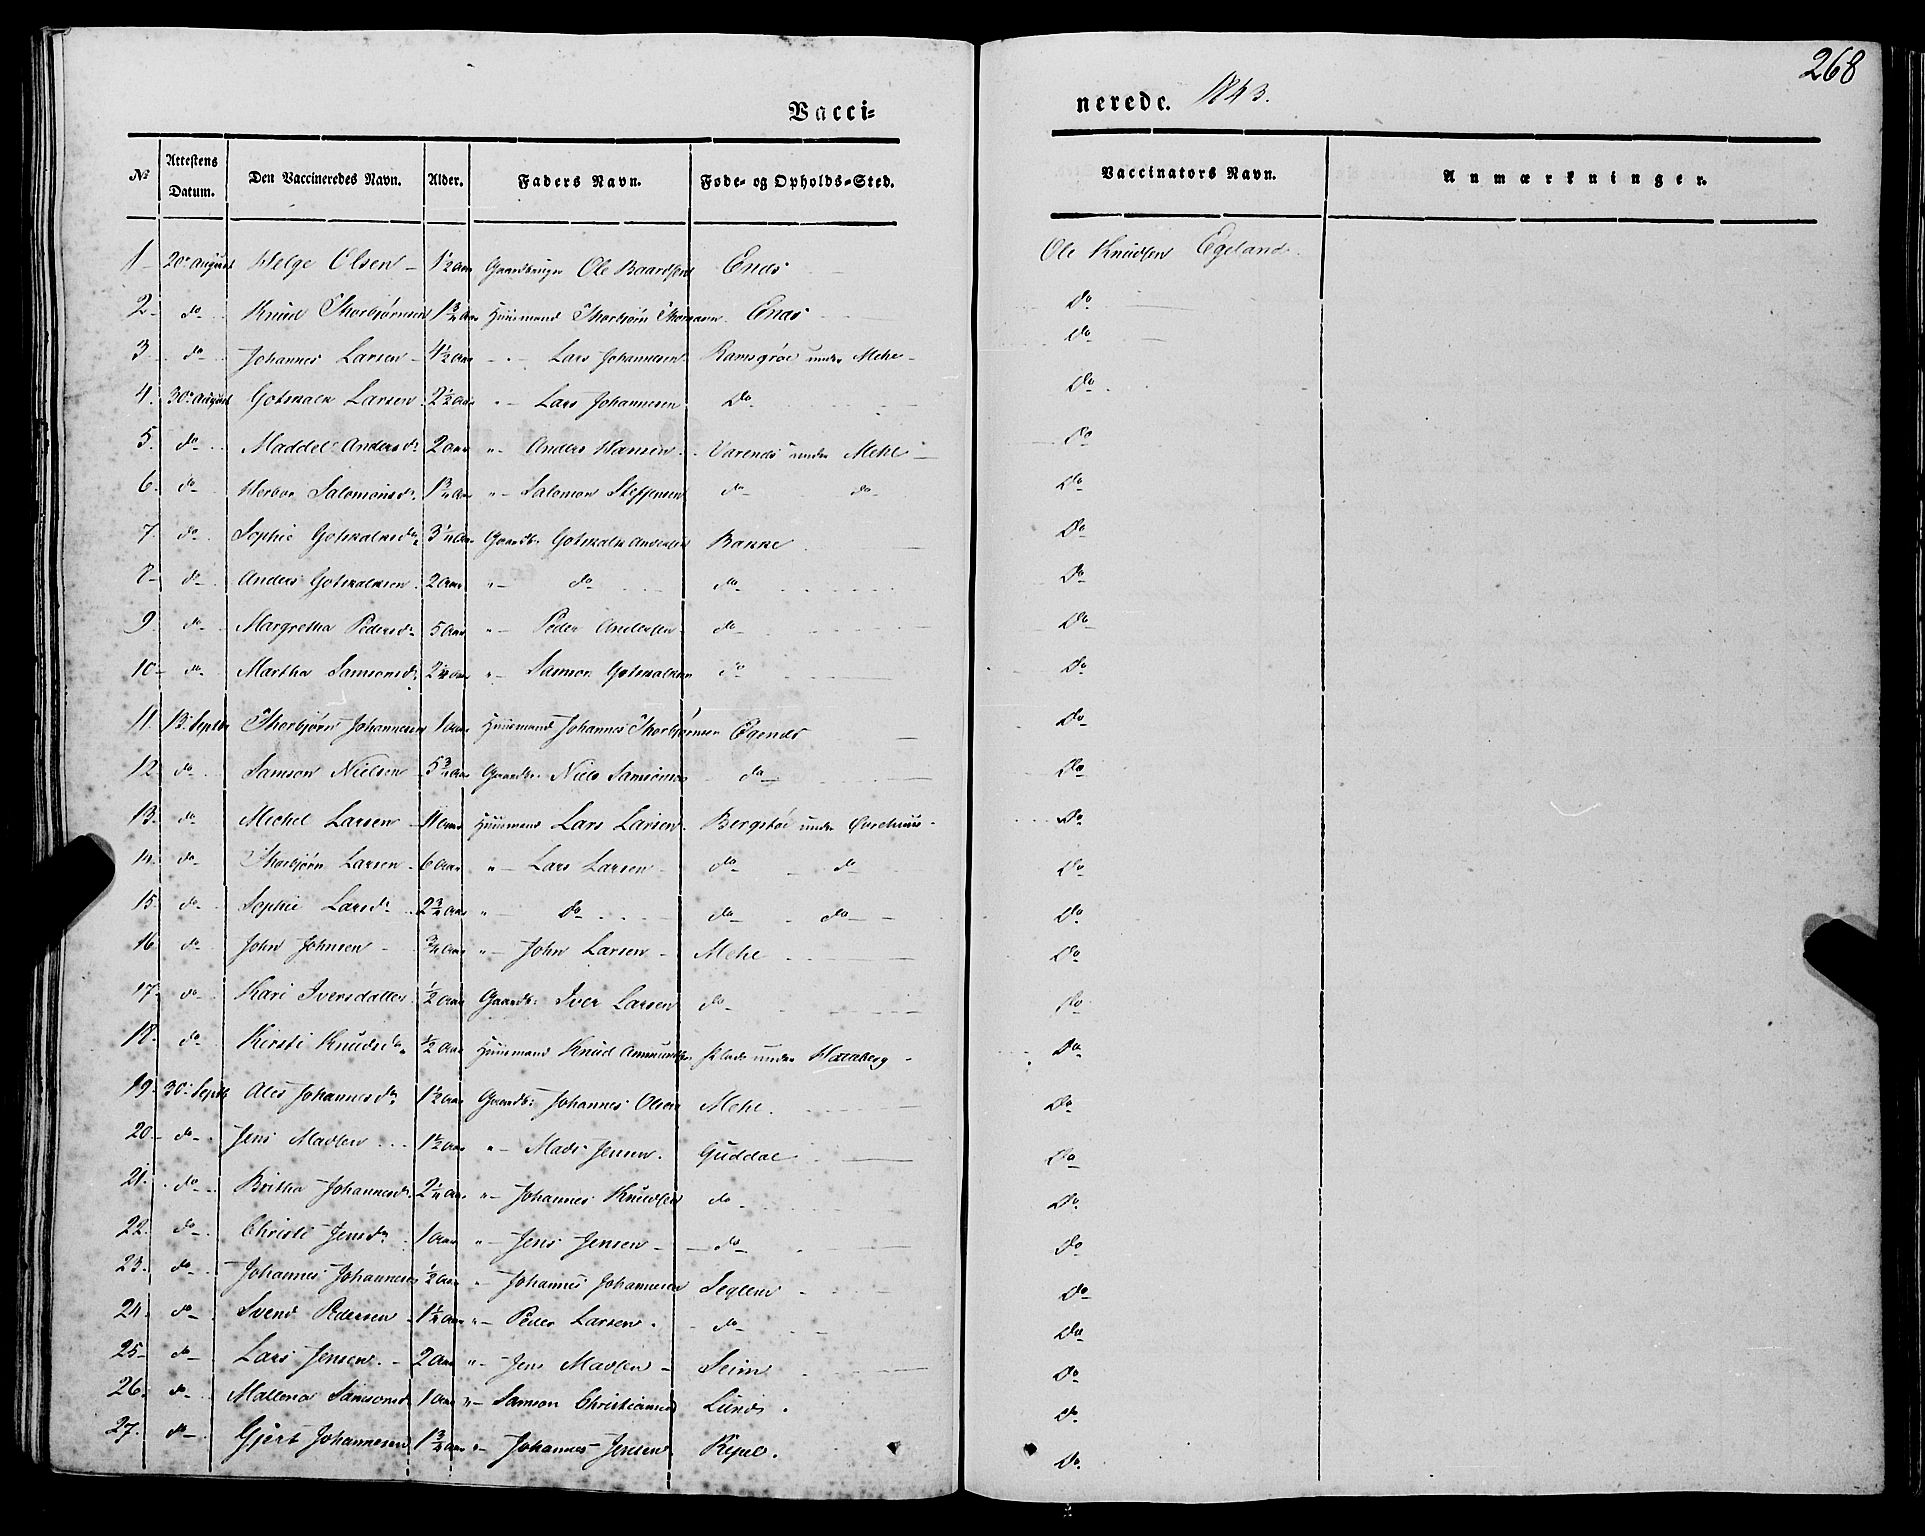 268
Vacci-
nerede. 1843.
No Attestens Datum. Den Vaccineredes Navn. Alder. Faders Navn. Fode- og Opholds-Sted. Vaccinators Navn. Anmærkninger.
1 20 august Helge Olsen 1½ aar Gaardbruger Ole Baardsen Enæs Ole Knudsen Egeland
2 do Knud Thorbjørnsen 1¾ aar Huusmand Thorbjørn Enæs Do
3 do Johannes Larsen 4½ aar " Lars Johannesen Ramsgrøe under Mehl Do
4. 30 august Gotskalk Larsen 2½ aar " Lars Johannesen Do Do
5. do Maddel Andersdr 2 aar " Anders Hansen under Mehl Do
6. do Salomonsdr 1¾ aar " Salomon Steffensen do do Do
7. do Sophie Gotskalksdr 3¼ aar Gaardbr: Gotskalk Andersen Bakke Do
8 do Anders Gotskalksen 2 aar " do do Do
9 do Margretha Pedersdr 5 aar " Peder Andersen do Do
10 do Martha Samsonsdr 2¼ aar " Samson Gotskalksen do Do
11. 13 Septbr Thorbjørn Johannesen 1 aar Huusmand Johannes Thorbjørnsen Egenæs Do
12 do Samson Nielsen 5¾ aar Gaardbr: Niels Samsonsen do Do
13. do Michel Larsen 11 aar Huusmand Lars Larsen Bergstøe under Øvrehuus Do
14. do Thorbjørn Larsen 6 aar " Lars Larsen do do Do
15 do Sophie Larsdr 2¾ aar " do do do Do
16 do John Johnsen ¾ aar " John Larsen Mehl Do
17. do Kari Iversdatter ½ aar Gaardbr: Iver Larsen do Do
18. do Kirsti Knudsdr ½ aar Huusmand Knud Ammundsen under Do
19. 30 Septbr Ales Johannesdr 1½ aar Gaardbr: Johannes Olsen Mehl. Do
20 do Jens Madsen 1½ aar " Mads Jensen Guddal Do
21. do Britha Johannesdr 2¼ aar " Johannes Knudsen do Do
22 do Christi Jensdr 1 aar " Jens Jensen do Do
23. do Johannes Johannesen ½ aar " Johannes Johannesen Seglem Do
24. do Svend Pedersen 1¼ aar " Peder Larsen do Do
25 do Lars Jensen 2 aar " Jens Madsen Seim Do
26. do Mallena Samsonsdr 1 aar " Samson Christiansen Lunde Do
27. do Gjert Johannesen 1¾ aar " Johannes Jensen Do